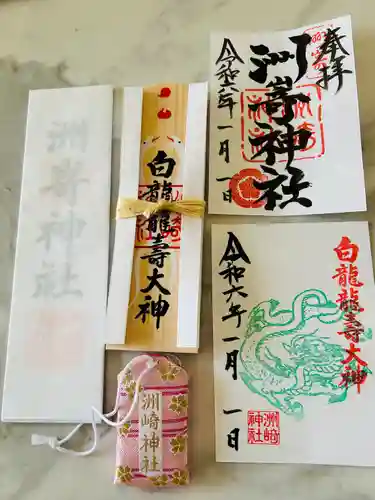 洲崎神社
白龍龍壽大神
奉拝
洲崎神社
令和六年一月一日
白龍龍壽大神
令和六年一月一日
洲崎神社
洲崎神社